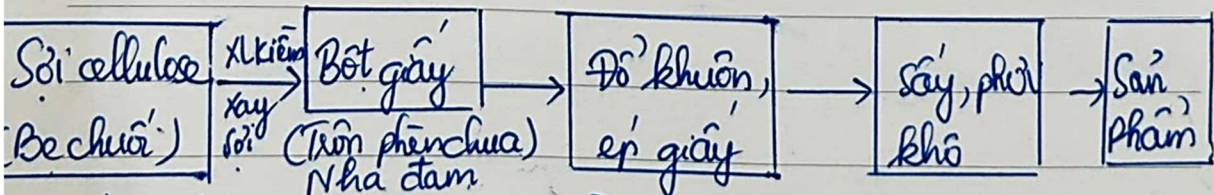 Sợi cellulose
(Bẹ chuối)
XL kiềm
xay
sợi
Bột giấy
(Trộn phèn chua)
Nha đam
Đổ khuôn,
ép giấy
Sấy, phơi
khô
Sản
phẩm